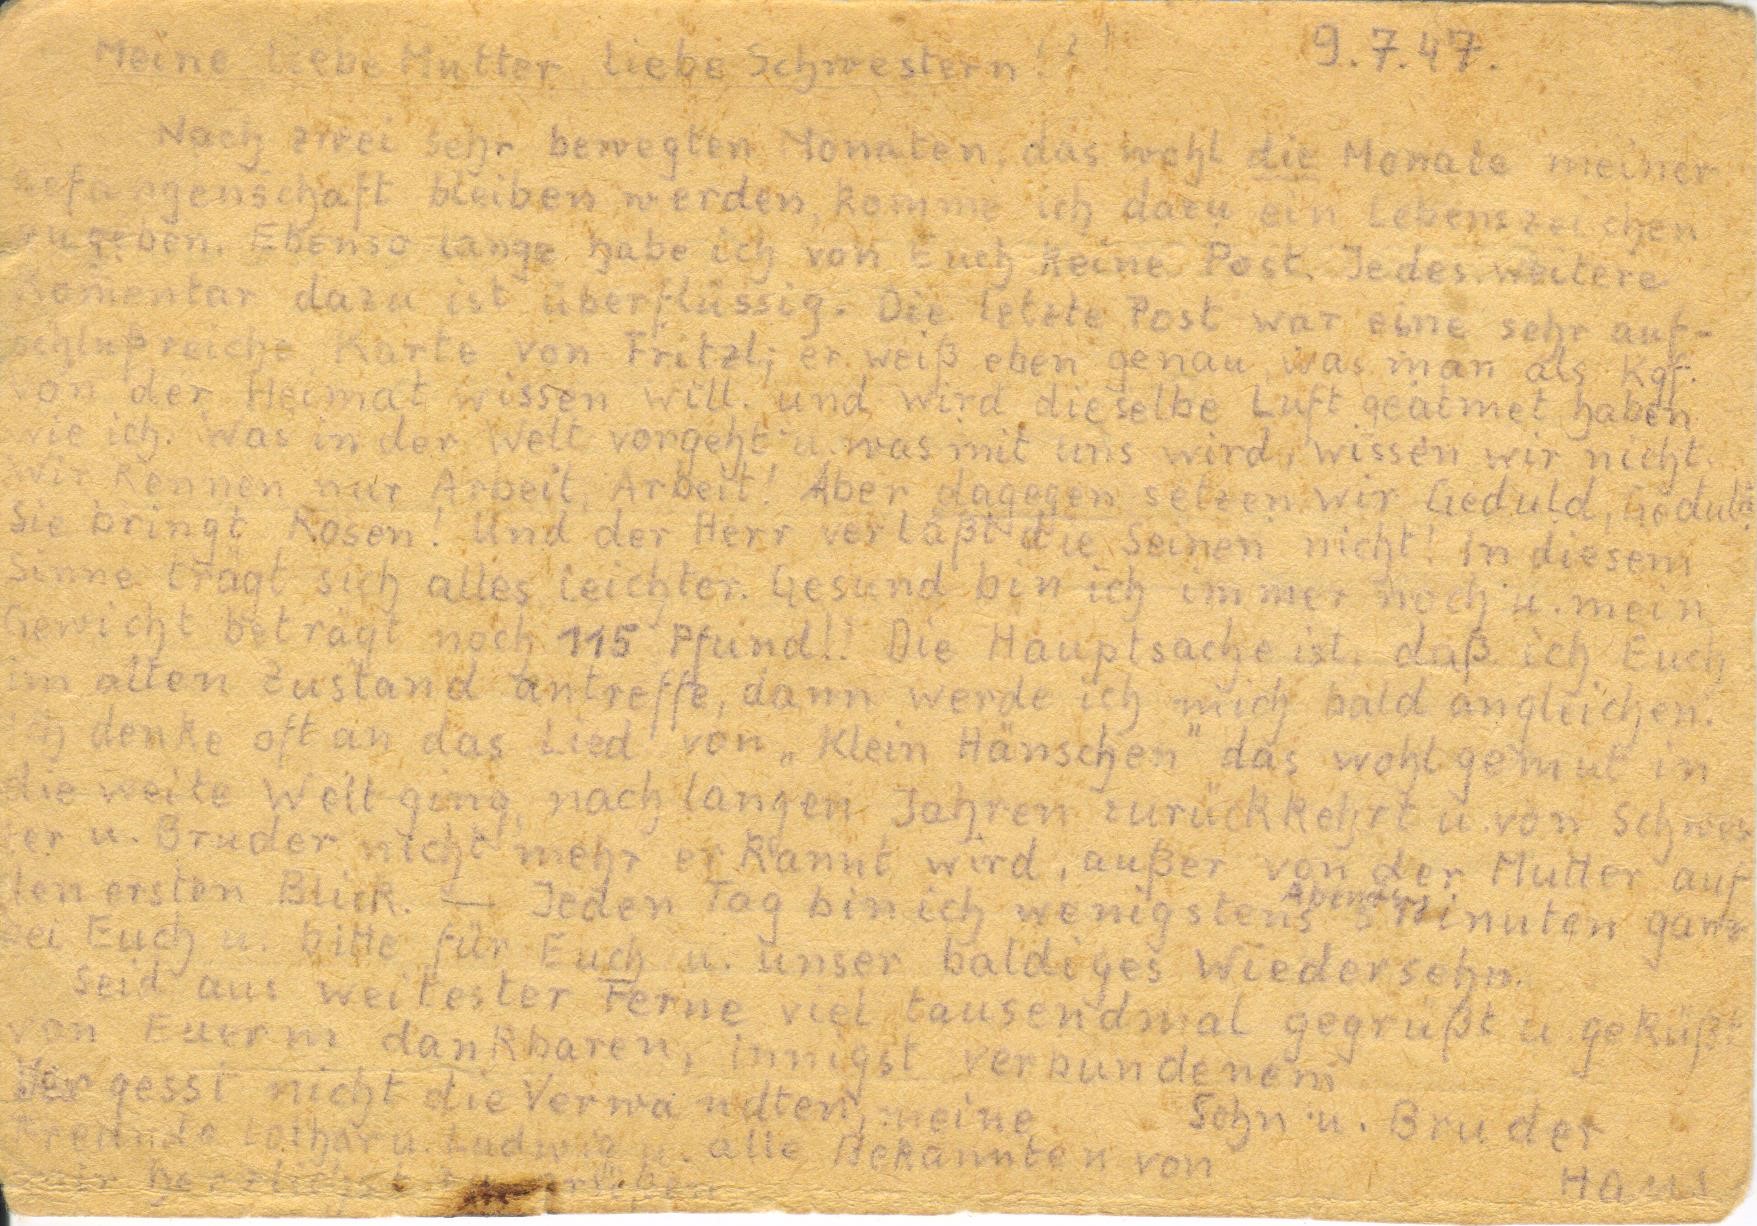 Meine liebe Mutter, liebe Schwestern!!! 9.7.47.
Nach zwei sehr bewegten Monaten, das wohl die Monate meiner
Gefangenschaft bleiben werden, komme ich dazu ein Lebenszeichen
zugeben. Ebenso lange habe ich von Euch keine Post. Jedes weitere
Komentar dazu ist überflüssig. Die letzte Post war eine sehr auf-
schlußreiche Karte von Fritzl; er weiß eben genau, was man als Kgf.
von der Heimat wissen will. und wird dieselbe Luft geatmet haben
wie ich. Was in der Welt vorgeht u. was mit uns wird, wissen wir nicht.
Wir kennen nur Arbeit, Arbeit! Aber dagegen setzen wir Geduld, Geduld!
Sie bringt Rosen! Und der Herr verläßt die Seinen nicht! In diesem
Sinne trägt sich alles leichter. Gesund bin ich immer noch u. mein
Gewicht beträgt noch 115 Pfund!! Die Hauptsache ist, daß ich Euch
im alten Zustand antreffe, dann werde ich mich bald angleichen.
Ich denke oft an das Lied von „Klein Hänschen" das wohlgemut in
die weite Welt ging, nach langen Jahren zurückkehrt u. von Schwes
ter u. Bruder nicht mehr erkannt wird, außer von der Mutter auf
den ersten Blick. — Jeden Tag bin ich wenigstens Abends 5 Minuten ganz
bei Euch u. bitte für Euch u. unser baldiges Wiedersehn.
Seid aus weitester Ferne viel tausendmal gegrüßt u. geküßt
von Euerm dankbaren, innigst verbundenem
Vergesst nicht die Verwandten, meine Sohn u. Bruder
Freunde Lothar u. Ludwig u. alle Bekannten von Hans
mir herzlichst zu grüßen